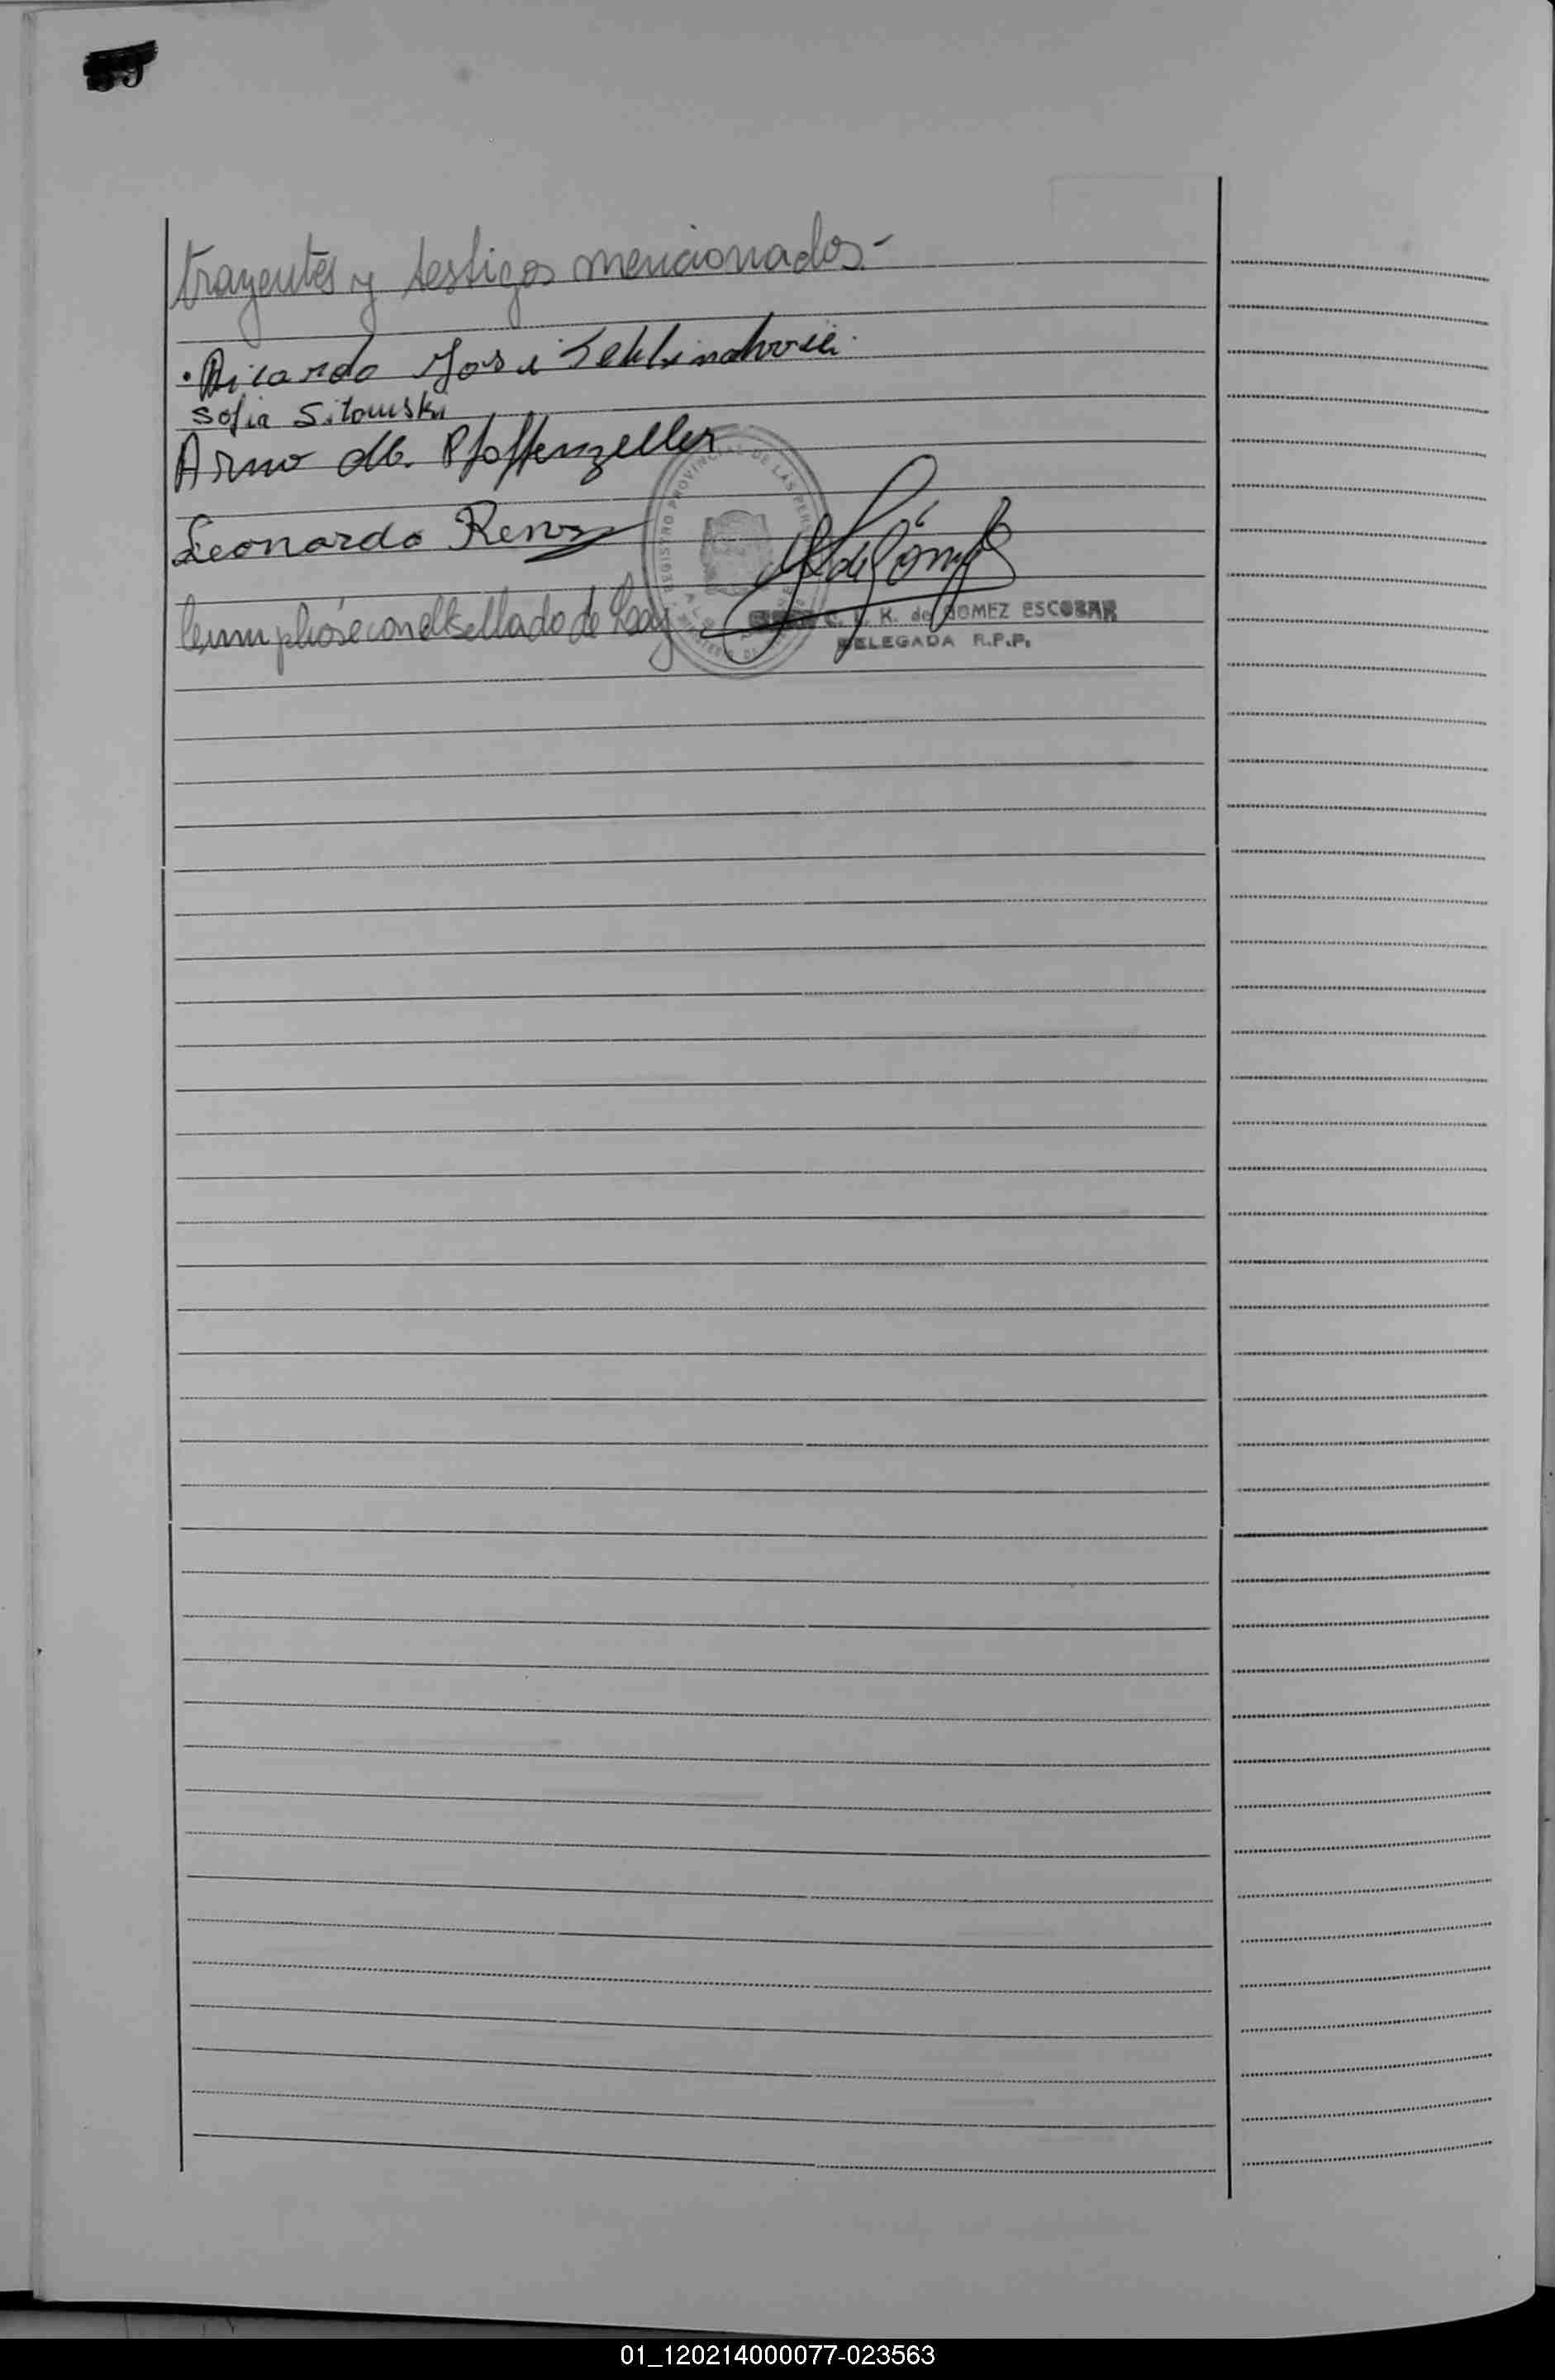 trayentes y testigos mencionados.-
Ricardo José
Sofia Sitowski
Arno Pfaffenzeller
Leonardo Renz
Cumplióse con el sellado de Ley
REGISTRO PROVINCIAL DE LAS PERS
K. de GOMEZ ESCOBAR
DELEGADA R.P.P.
01_120214000077-023563